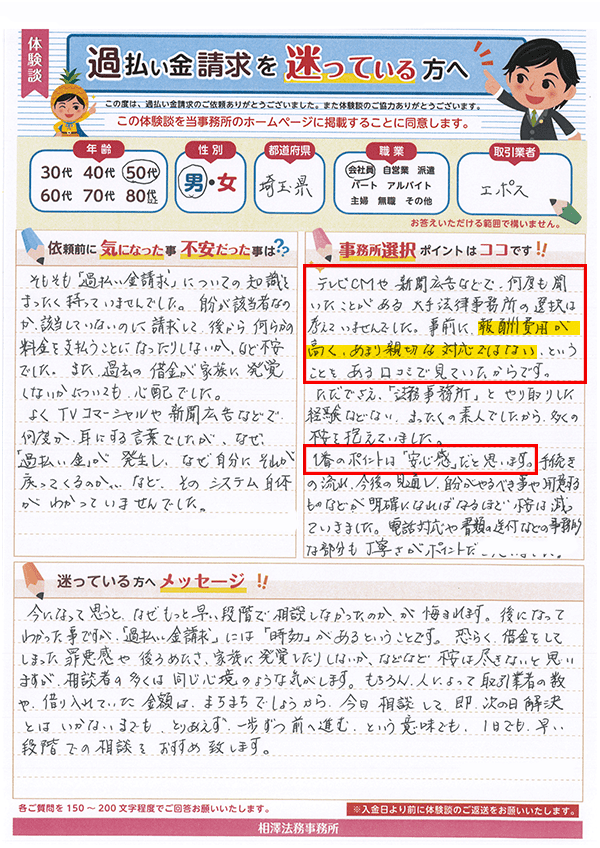 体験談
過払い金請求を迷っている方へ
この度は、過払い金請求のご依頼ありがとうございました。また体験談のご協力ありがとうございます。
この体験談を当事務所のホームページに掲載することに同意します。
年齢
30代 40代 50代
60代 70代 80代以上
性別
男・女
都道府県
埼玉県
職業
会社員 自営業 派遣
パート アルバイト
主婦 無職 その他
取引業者
エポス
お答えいただける範囲で構いません。
依頼前に気になった事 不安だった事は??
そもそも「過払い金請求」についての知識を
まったく持っていませんでした。自分が該当者なの
か、該当していないのに請求して、後から何らかの
料金を支払うことになったりしないか、など不安
でした。また、過去の借金が家族に発覚
しないかについても、心配でした。
よくTVコマーシャルや新聞広告などで
何度か、耳にする言葉でしたが、なぜ、
「過払い金」が発生し、なぜ自分にそれが
戻ってくるのか、など、そのシステム自体
がわかっていませんでした。
事務所選択ポイントはココです!!
テレビCMや新聞広告などで、何度も聞
いたことがある大手法律事務所の選択は
考えていませんでした。事前に、報酬費用が
高く、あまり親切な対応ではない、という
ことをある口コミで見ていたからです。
ただでさえ、「法務事務所」とやり取りした
経験などない、まったくの素人でしたから、多くの
不安を抱えていました。
1番のポイントは「安心感」だと思います。手続き
の流れ、今後の見通し、自分がやるべき事や用意する
ものなどが明確になればなるほど不安は減っ
ていきました。電話対応や書類の送付などの事務的
な部分も丁寧さがポイントだ
迷っている方へメッセージ!!
今になって思うと、なぜもっと早い段階で相談しなかったのか、が悔まれます。後になって
わかった事ですが、「過払い金請求」には「時効」があるということです。恐らく、借金をして
しまった罪悪感や、後ろめたさ、家族に発覚したりしないか、などなど不安は尽きないと思い
ますが、相談者の多くは同じ心境のような気がします。もちろん、人によって取引業者の数
や、借り入れていた金額は、まちまちでしょうから、今日相談して、即、次の日解決
とはいかないまでも、とりあえず、一歩ずつ前へ進む、という意味でも、1日でも、早い
段階での相談をおすすめ致します。
各ご質問を150～200文字程度でご回答お願いいたします。
※入金日より前に体験談のご返送をお願いいたします。
相澤法務事務所